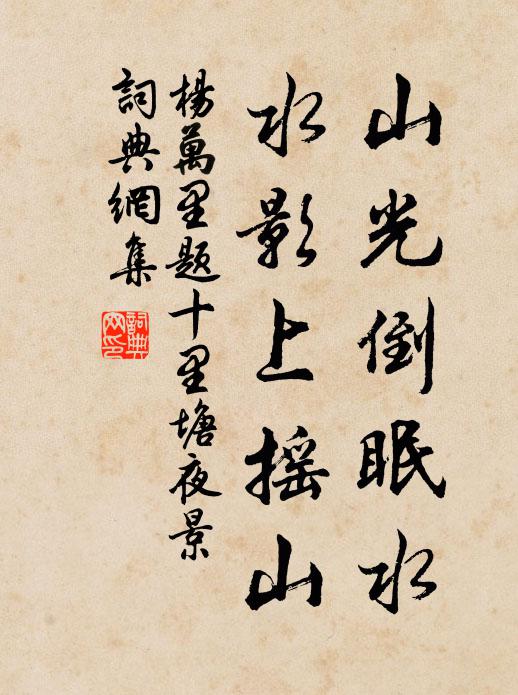 山光倒眠水
水影上摇山
楊萬里题十里塘夜景
詞典網集
詞典網印